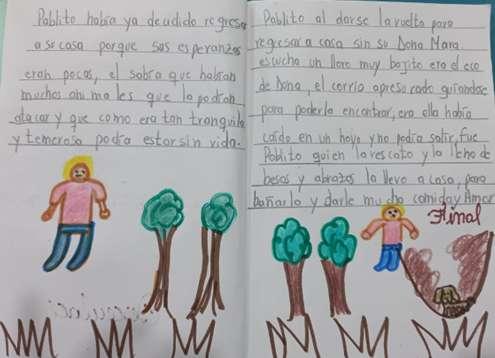 Pablito habia ya decidido regresar
a su casa porque sus esperanzas
eran pocas, el sabia que habian
muchos animales que la podian
atacar y que como era tan tranquila
y temerosa podia estar sin vida.
Pablito al darse la vuelta para
regresar a casa sin su Dona Mara
escucha un lloro muy bajito era el eco
de Dona, el corrio apresurado guiandose
para poderla encontrar, era ella había
caído en un hoyo y no podia salir, fue
Pablito quien la rescato y la lleno de
besos y abrazos la llevo a casa, para
bañarla y darle mucha comida y Amor
Final